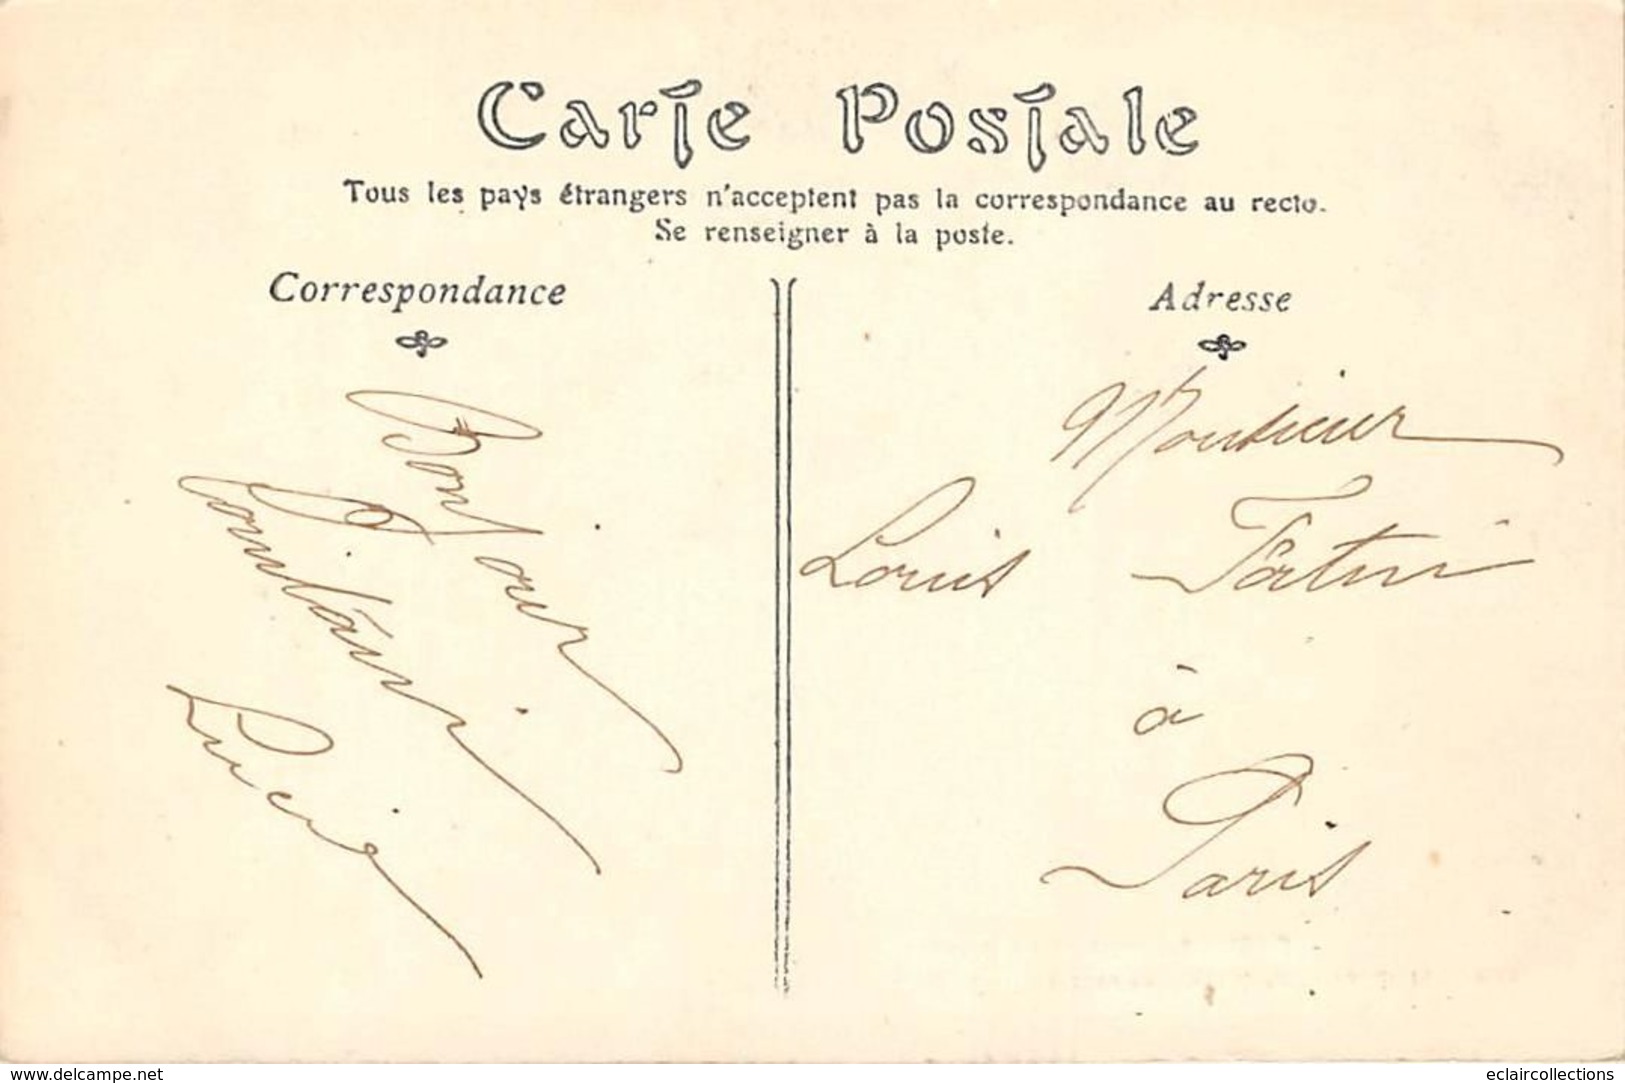 Carte Postale
Tous les pays étrangers n'acceptent pas la correspondance au recto.
Se renseigner à la poste.
Correspondance
Adresse
Bonjour
Lucie
Monsieur
Louis
à
Paris
www.delcampe.net
eclaircollections